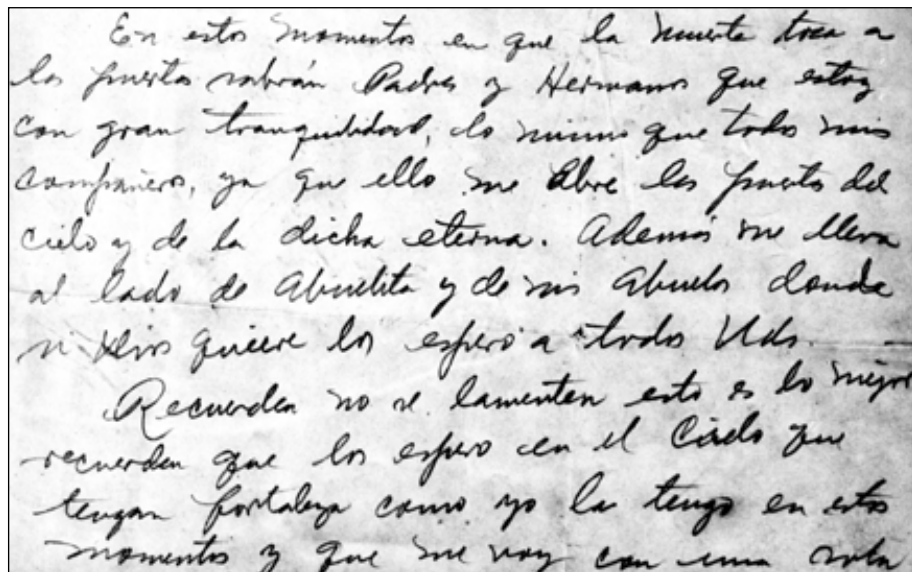 En estos momentos en que la muerte toca a
las puertas sabrán Padres y Hermanos que estoy
con gran tranquilidad, lo mismo que todos mis
compañeros, ya que ello me abre las puertas del
cielo y de la dicha eterna. Además me lleva
al lado de Abuelita y de mis Abuelos donde
si Dios quiere los espero a todos Uds.
Recuerden no se lamenten esto es lo mejor
recuerden que los espero en el Cielo que
tengan fortaleza como yo la tengo en estos
momentos y que me voy con una sola